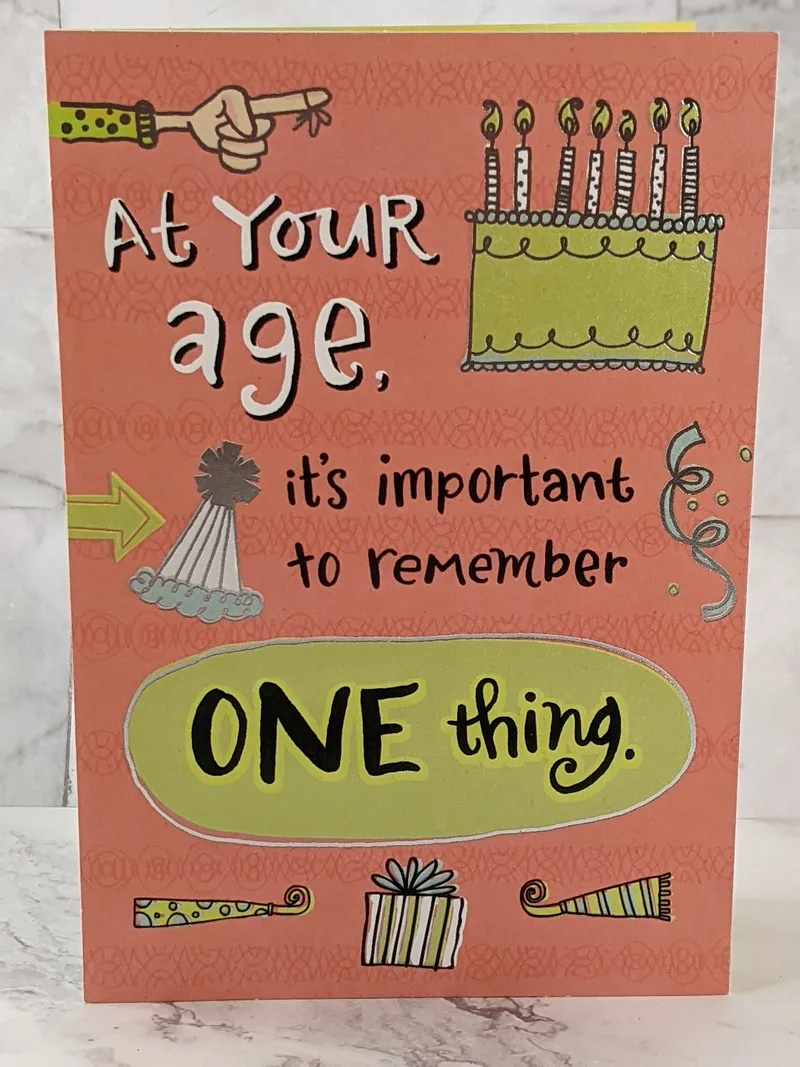 At YOUR
age,
it's important
to remember
ONE thing.